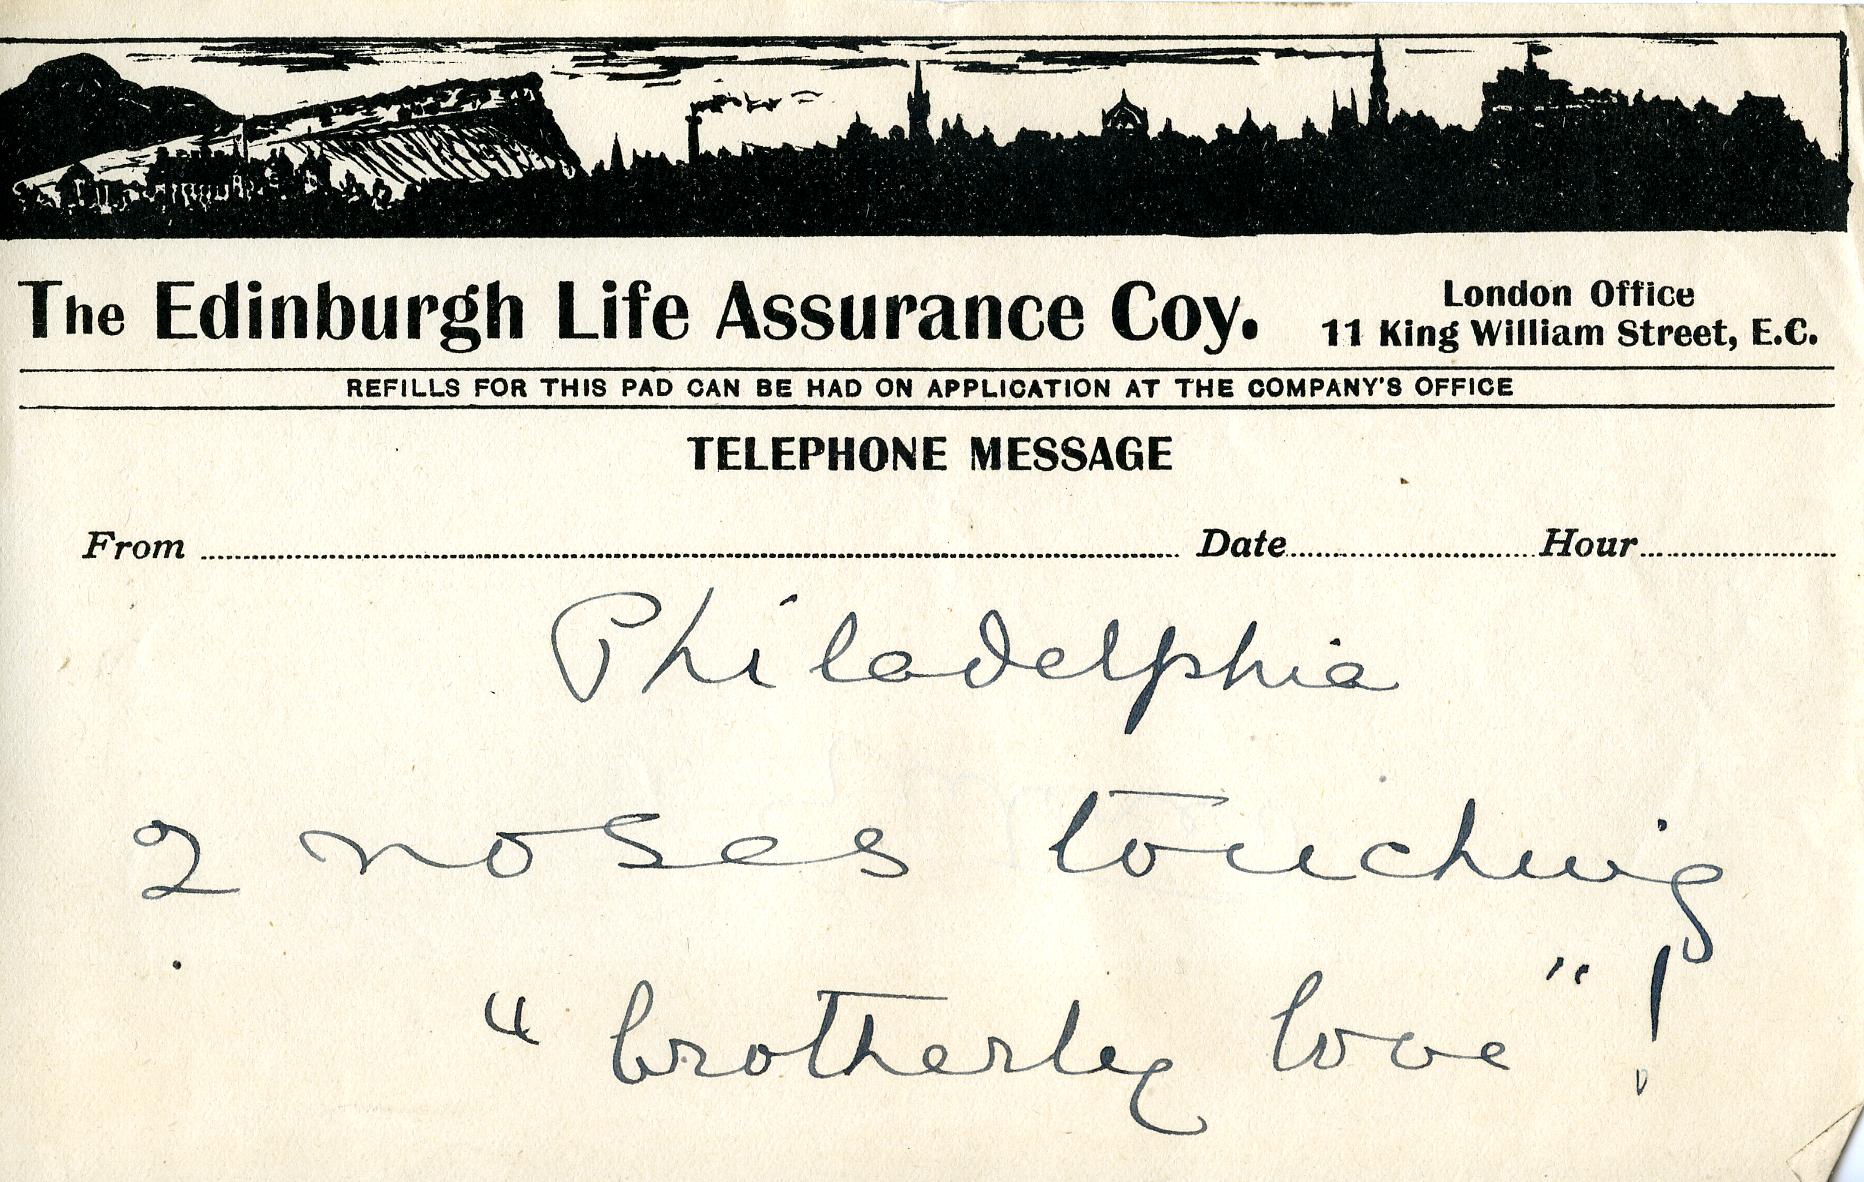 The Edinburgh Life Assurance Coy.
London Office
11 King William Street, E.C.
REFILLS FOR THIS PAD CAN BE HAD ON APPLICATION AT THE COMPANY'S OFFICE
TELEPHONE MESSAGE
From Date Hour
Philadelphia
2 noses touching
"brotherly love"!